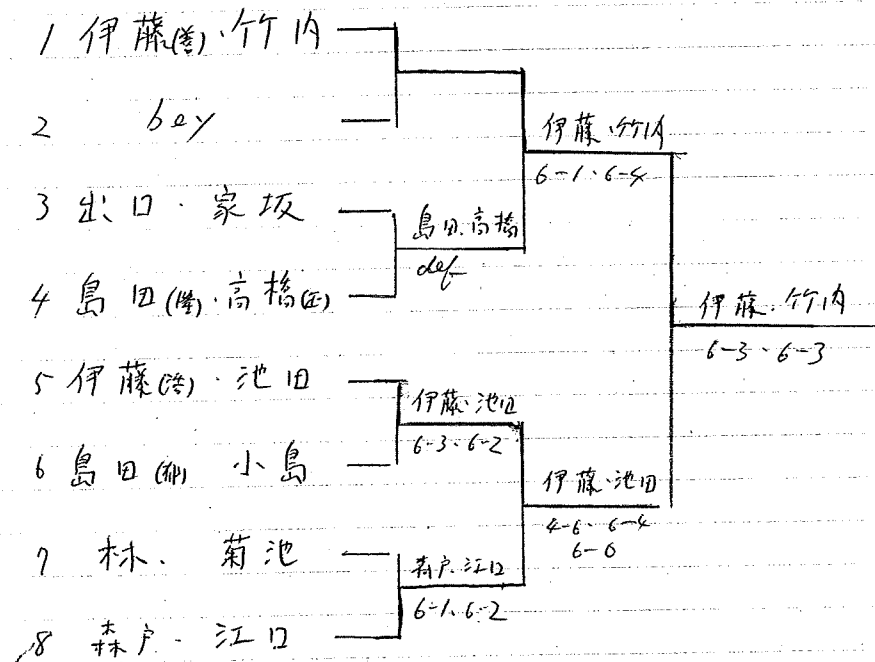 1 伊藤(誉)・竹内
2 bey
3 出口・家坂
4 島田(隆)・高橋(正)
5 伊藤(浩)・池田
6 島田 小島
7 林・菊池
8 森戸・江口
島田・高橋
def
伊藤・池田
6-3・6-2
森戸・江口
6-1・6-2
伊藤・竹内
6-1・6-4
伊藤・池田
4-6・6-4
6-0
伊藤・竹内
6-3・6-3